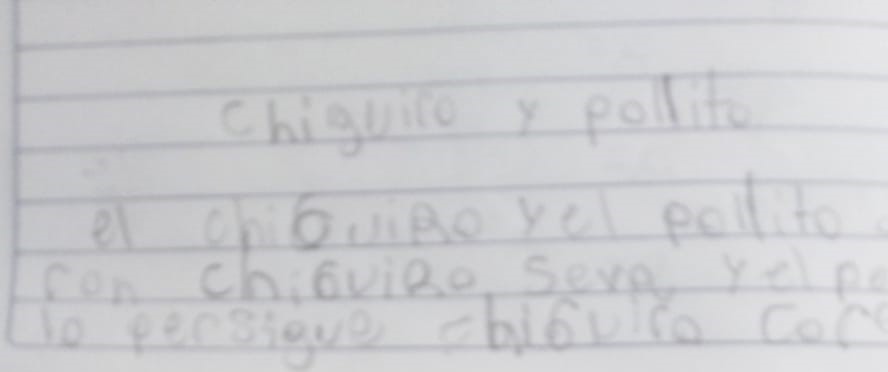 chiguiro y pollito
el chiGuiRo y el pollito
con chiGuiRo seva y el
lo persigue chiGuiro